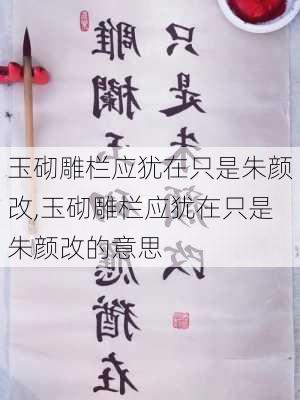 玉砌雕栏应犹在只是朱颜
改,玉砌雕栏应犹在只是
朱颜改的意思
雕欄玉砌應猶在
只是朱顏改